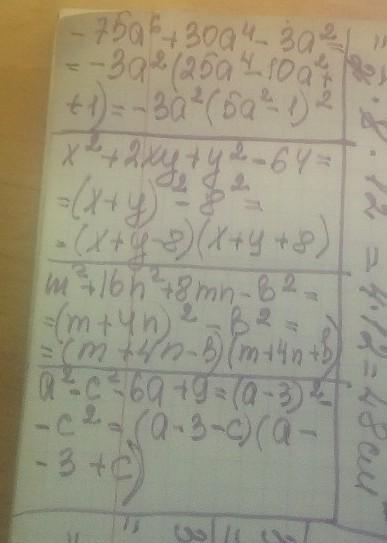 -75a⁶+30a⁴-3a²=
=-3a²(25a⁴-10a²+
+1)=-3a²(5a²-1)²
x²+2xy+y²-64=
=(x+y)²-8²=
=(x+y-8)(x+y+8)
m²+16n²+8mn-b²=
=(m+4n)²-b²=
=(m+4n-b)(m+4n+b)
a²-c²-6a+9=(a-3)²-
-c²=(a-3-c)(a-
-3+c)
8·12=4·12=48см